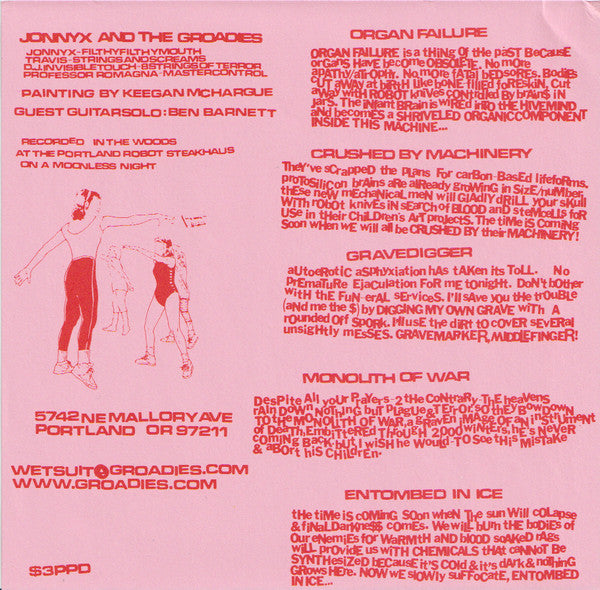 JONNYX AND THE GROADIES
JONNYX-FILTHYFILTHYMOUTH
TRAVIS-STRINGSANDSCREAMS
D.J.INVISIBLETOUCH-8STRINGSOFTERROR
PROFESSOR ROMAGNA-MASTERCONTROL
PAINTING BY KEEGAN MCHARGUE
GUEST GUITARSOLO:BEN BARNETT
RECORDED IN THE WOODS
AT THE PORTLAND ROBOT STEAKHAUS
ON A MOONLESS NIGHT
5742 NE MALLORY AVE
PORTLAND OR 97211
WETSUIT@GROADIES.COM
WWW.GROADIES.COM
$3PPD
ORGAN FAILURE
ORGAN FAILURE is a thing of the past Because
organs Have become OBSOLETE. No more
apathy/atrophy. No more fatal bedsores. Bodies
CUT aWay at birth like bone filled foreskin, Cut
away with ROBOT knives controlled By brains in
jars. The infant Brain is wired into the HIVEMIND
and becomes a SHRIVELED ORGANIC COMPONENT
INSIDE THIS MACHINE...
CRUSHED BY MACHINERY
They've scrapped the plans for carbon-Based lifeforms.
protosilicon brains are already growing in size/number.
these new mechanical men will GLADLY drill your skull
WITH robot knives in search of BLOOD and stemcells for
Use in their Children's Art projects. The time is Coming
Soon when we will all be CRUSHED BY their MACHINERY!
GRAVEDIGGER
autoerotic asphyxiation has taken its Toll. No
premature Ejaculation For me tonight. Don't bother
with the Funeral services. I'll save you the trouble
(and me the $) by DIGGING MY OWN GRAVE with a
rounded off Spork. I'll use the dirt to cover several
unsightly messes. GRAVEMARKER, MIDDLEFINGER!
MONOLITH OF WAR
Despite All your Prayers 2 the contrary. The heavens
rain down nothing but plague & Terror, so they BOW DOWN
TO the MONOLITH OF WAR, a graven image of an instrument
of Death. Embittered through 2000 winters, he's never
coming Back but I wish he would. To See this mistake
& abort his CHILDREN.
ENTOMBED IN ICE
the time is coming Soon when The sun Will Colapse
& final Darkne$$ comes. We will burn the bodies of
Our enemies for warmth and blood soaked rags
will provide us with CHEMICALS that cannot Be
SYNTHESIZED because it's cold & it's dark & nothing
Grows Here. NOW we slowly suffocate, ENTOMBED
IN ICE...